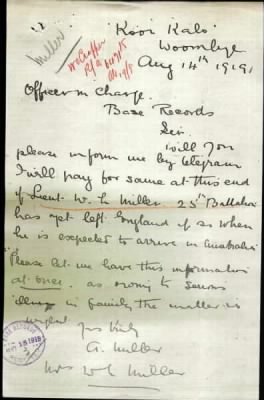 Miller
"Koor Kalo"
Woombye
Aug 14th 1919.
Officer in Charge.
Base Records
Sir.
Will You
please inform me by telegram
I will pay for same at this end
if Lieut. W. L. Miller 25th Battalion
has yet left England if so when
he is expected to arrive in Australia
Please let us have this information
at once. as owing to serious
illness in family the matter is
urgent
A. Miller
Miller